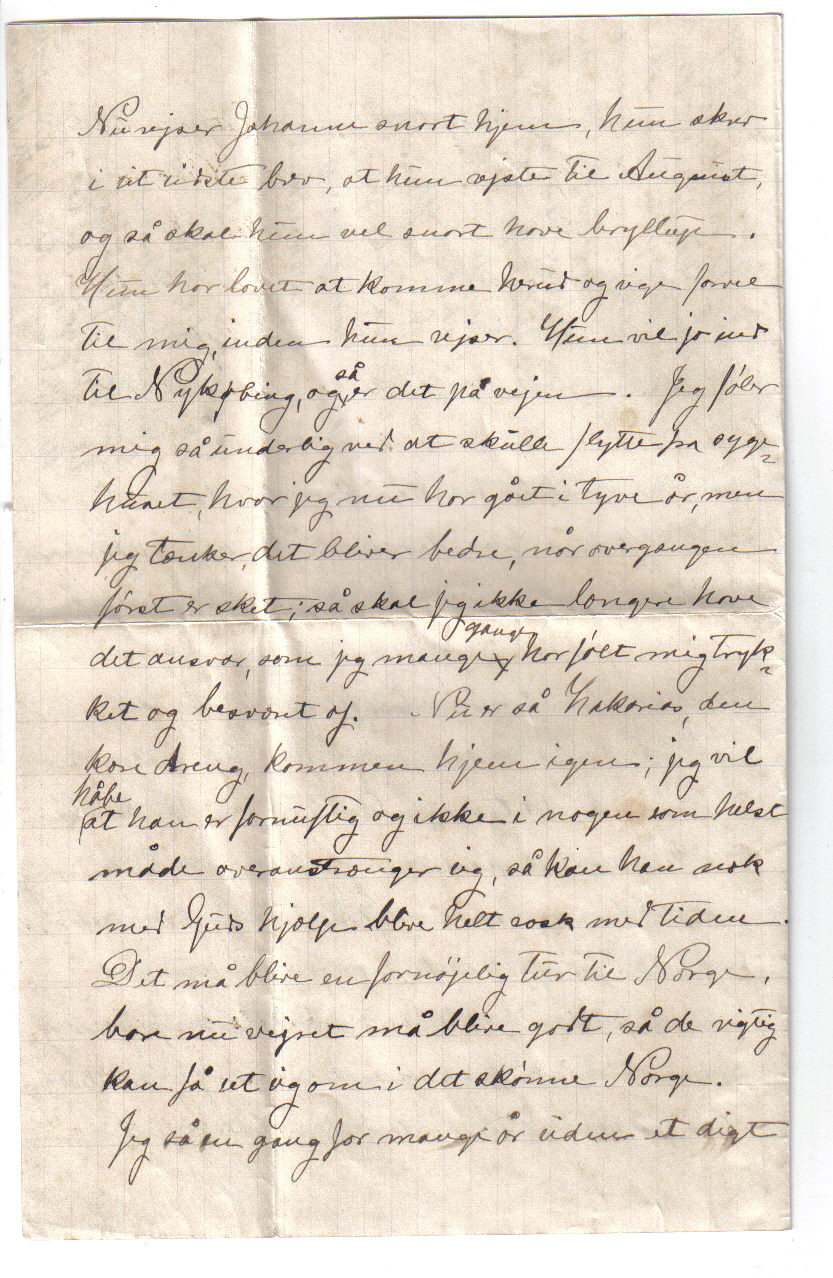 Nu rejser Johanne snart hjem, hun skrev
i sit sidste brev, at hun rejste til August,
og så skal hun vel snart have bryllup.
Hun har lovet at komme herud og sige farvel
til mig, inden hun rejser. Hun vil jo ind
til Nykøbing, og så er det på vejen. Jeg føler
mig så underlig ved at skulle flytte fra syge=
huset, hvor jeg nu har gået i tyve år, men
jeg tænker, det bliver bedre, når overgangen
først er sket; så skal jeg ikke længere have
det ansvar, som jeg mange gange har følt mig tryk=
ket og besværet af. Nu er så Zakarias, den
kære dreng, kommen hjem igen; jeg vil
håbe
at han er fornuftig og ikke i nogen som helst
måde overanstrænger sig, så kan han nok
med Guds hjælp blive helt rask med tiden.
Det må blive en fornøjelig tur til Norge,
bare nu vejret må blive godt, så de rigtig
kan få set sig om i det skønne Norge.
Jeg så en gang for mange år siden et digt